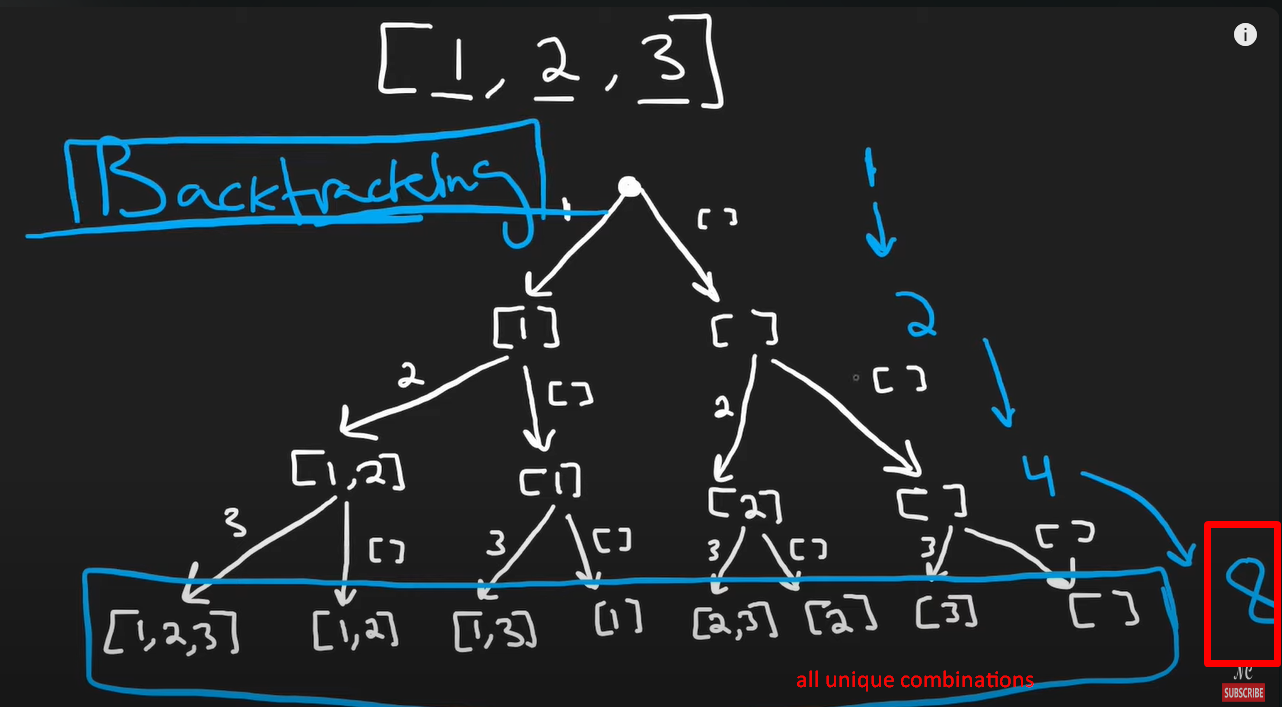 [1, 2, 3]
Backtracking
1
1 []
[1] []
2
2 [] 2 []
[1,2] [1] [2] []
4
3 [] 3 [] 3 [] 3 []
8
[1,2,3] [1,2] [1,3] [1] [2,3] [2] [3] []
all unique combinations
NC
SUBSCRIBE
i